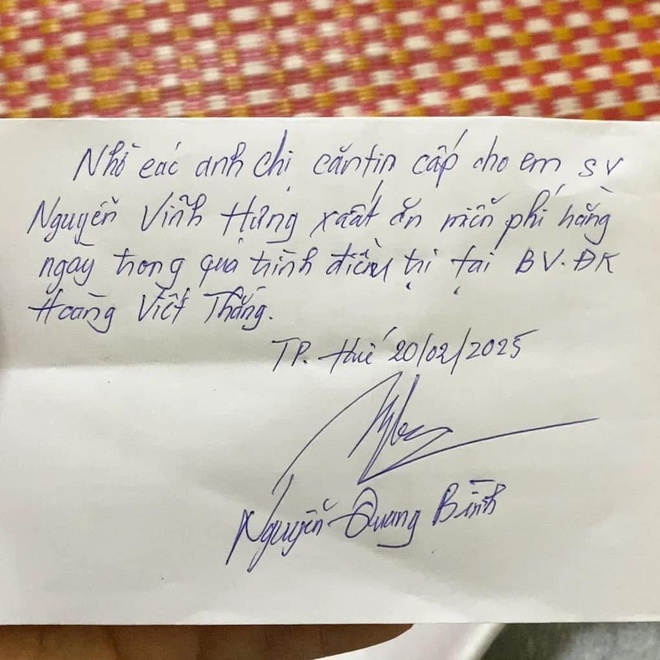 Nhờ các anh chị căntin cấp cho em, SV
Nguyễn Vĩnh Hưng xuất ăn miễn phí hằng
ngày trong quá trình điều trị tại BV.ĐK
Hoàng Viết Thắng.
TP. Huế 20/02/2025
Nguyễn Quang Bình